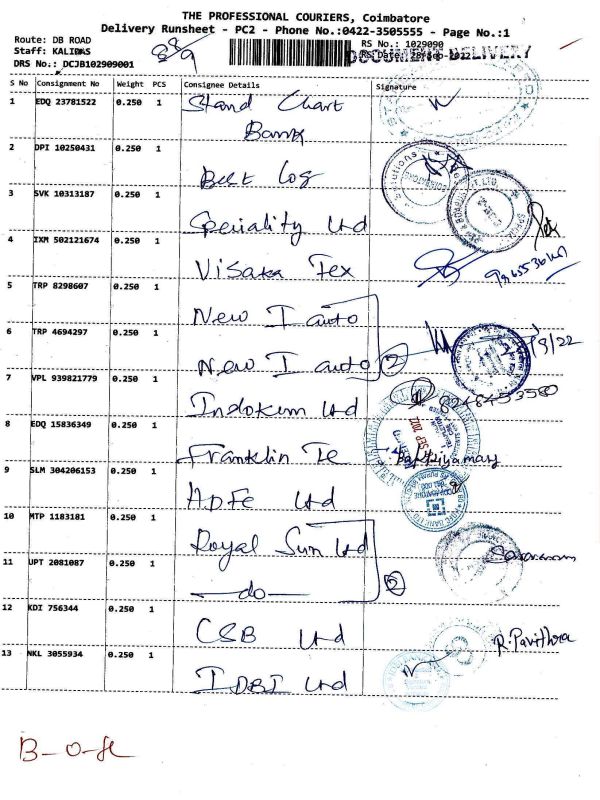 THE PROFESSIONAL COURIERS, Coimbatore
Delivery Runsheet - PC2 - Phone No.:0422-3505555 - Page No.:1
Route: DB ROAD
Staff: KALIDAS
DRS No.: DCJB102909001
28/9
RS No.: 1029090
RS Date: 28-Sep-2022
DOCUMENT DELIVERY
S No Consignment No Weight PCS Consignee Details Signature
1 EDQ 23781522 0.250 1 Stand Chart
Bank
2 DPI 10250431 0.250 1 Best Log
3 SVK 10313187 0.250 1 Speciality Ltd
4 IXM 502121674 0.250 1 Visaka Tex
5 TRP 8298607 0.250 1 New I auto
6 TRP 4694297 0.250 1 New I auto 2
7 VPL 939821779 0.250 1 Indokem Ltd 8248453580
8 EDQ 15836349 0.250 1 Franklin Te
9 SLM 304206153 0.250 1 HDFC Ltd
10 MTP 1183181 0.250 1 Royal Sun Ltd
11 UPT 2081087 0.250 1 —do—
12 KDI 756344 0.250 1 CSB Ltd R. Pavithra
13 NKL 3055934 0.250 1 IDBI Ltd